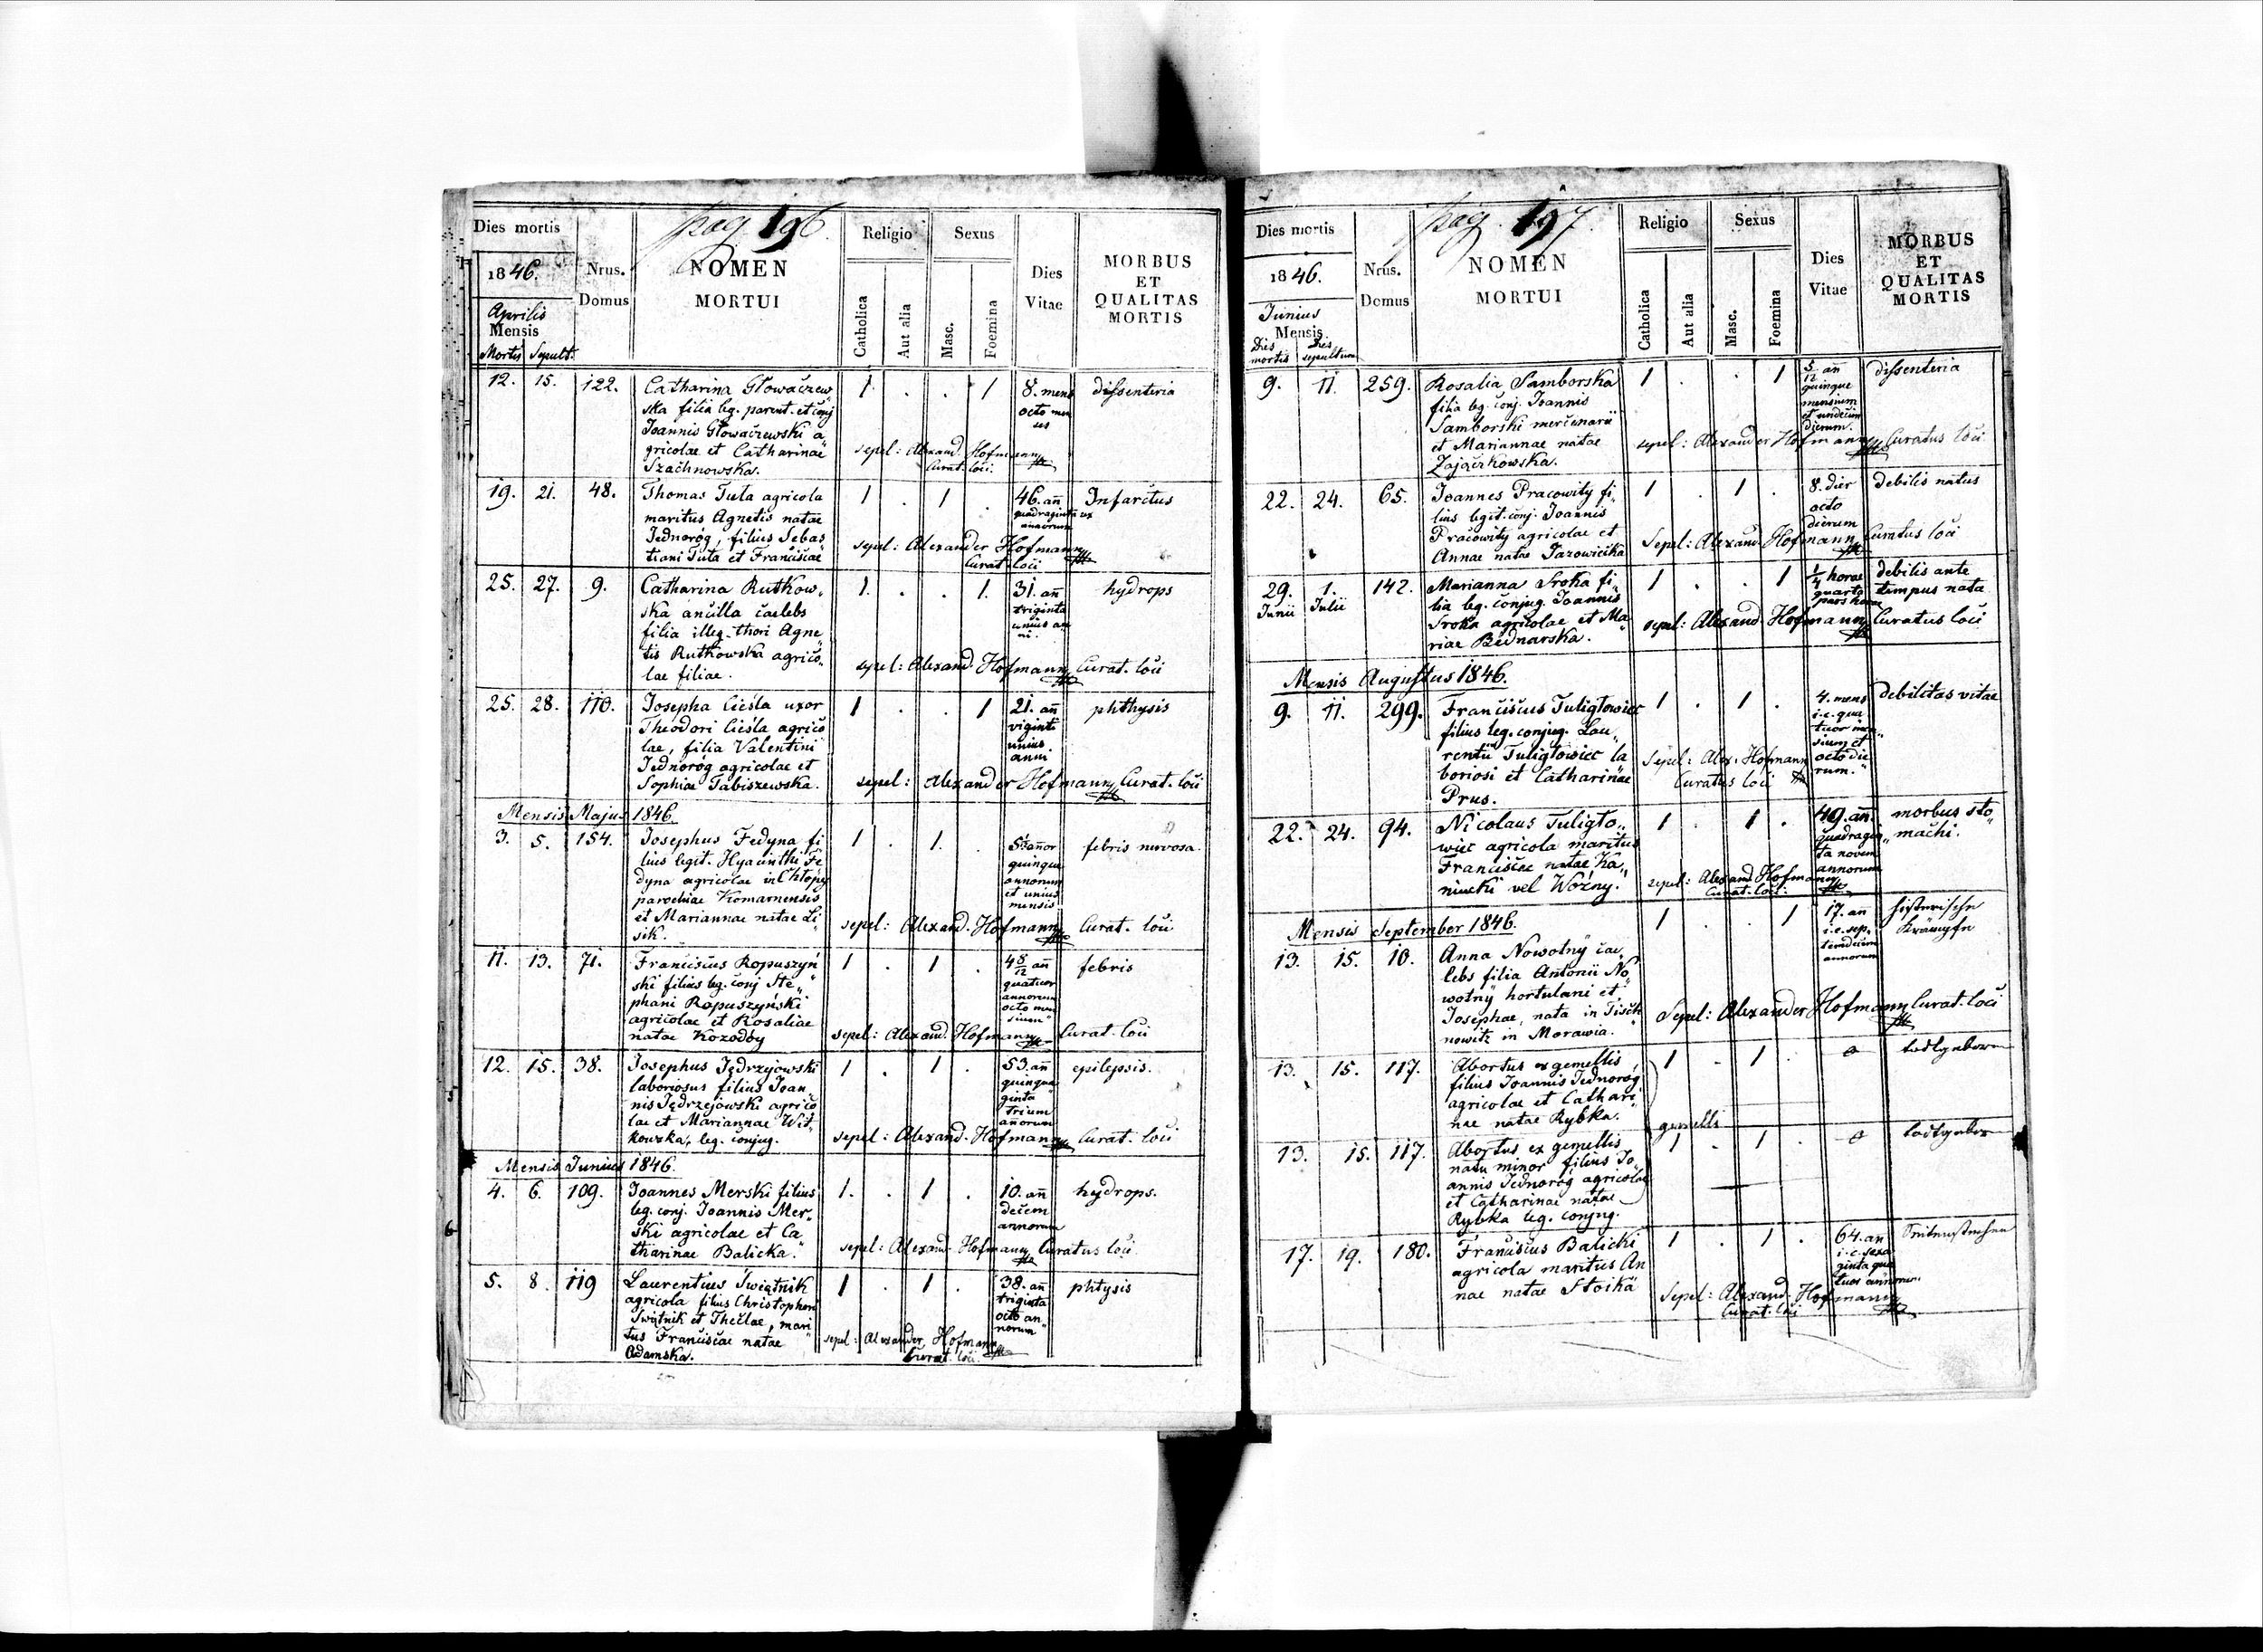 pag. 196.
Dies mortis
Religio
Sexus
1846.
Nrus.
Domus
NOMEN
MORTUI
Dies
Vitae
MORBUS
ET
QUALITAS
MORTIS
Aprilis
Mensis
Mortis Sepult.
Catholica
Aut alia
Masc.
Foemina
12. 15. 122. Catharina Głowaczew„ 1 . . 1 8. mens dissenteria
ska filia leg. parent. et conj octo men
Joannis Głowaczewski a„ ses
gricolae et Catharinae sepel: Alexand. Hofmann
Szachnowska. Curat. loci:
19. 21. 48. Thomas Tuta agricola 1 . 1 . 46. an̄ Infarctus
maritus Agnetis natae quadraginta sex
Jednoróg, filius Sebas annorum
tiani Tuta et Franciscae sepel: Alexander Hofmann
Curat loci
25. 27. 9. Catharina Rutkow„ 1. . . 1. 31. an̄ hydrops
ska ancilla caelebs triginta
filia illeg. thori Agne„ unius an
tis Rutkowska agrico„ ni.
lae filiae. sepel: Alexand. Hofmann Curat. loci
25. 28. 110. Josepha Cieśla uxor 1 . . 1 21. an̄ phthysis
Theodori Cieśla agrico viginti
lae, filia Valentini unius
Jednoróg agricolae et anni
Sophiae Tabiszewska. sepel: Alexander Hofmann Curat. loci
Mensis Majus 1846.
3. 5. 154. Josephus Fedyna fi 1 . 1. febris nervosa
lius legit. Hyacinthi Fe quinque
dyna agricolae in Chłopy annorum
parochiae Komarnensis et unius
et Mariannae natae Li mensis
sik. sepel: Alexand. Hofmann Curat. loci
11. 13. 71. Franciscus Ropuszyń 1 . 1 . 48/12 an̄ febris
ski filius leg. conj Ste„ quatuor
phani Ropuszyński annorum
agricolae et Rosaliae octo men
natae Kozodóy sium
sepel: Alexand. Hofmann Curat. loci
12. 15. 38. Josephus Jędrzejowski 1 . 1 . 53. an̄ epilepsis.
laboriosus filius Joan„ quinqua
nis Jędrzejowski agrico ginta
lae et Mariannae Wit„ trium
kowska, leg. conjug. annorum
sepel: Alexand. Hofmann Curat. loci
Mensis Junius 1846.
4. 6. 109. Joannes Merski filius 1. . 1 . 10. an̄ hydrops.
leg. conj. Joannis Mer„ decem
ski agricolae et Ca annorum
tharinae Balicka. sepel: Alexand. Hofmann Curatus loci
5. 8. 119 Laurentius Świątnik 1 . 1 . 38. an̄ phtysis
agricola filius Christophori triginta
Świątnik et Theclae, mari octo an„
tus Franciscae natae norum
Adamska. sepel: Alexander Hofmann
Curat. loci
pag. 197.
Dies mortis
Religio
Sexus
1846.
Nrus.
Domus
NOMEN
MORTUI
Dies
Vitae
MORBUS
ET
QUALITAS
MORTIS
Junius
Mensis
Dies mortis Dies sepulturae
Catholica
Aut alia
Masc.
Foemina
9. 11. 259. Rosalia Samborska 1 . . 1 5/12 an̄ dissenteria
filia leg. conj. Joannis quinque
Samborski mercenarii mensium
et Mariannae natae et undecim
Zajączkowska. dierum.
sepel: Alexander Hofmann Curatus loci
22. 24. 65. Joannes Pracowity fi„ 1 . 1 . 8. dier debilis natus
lius legit. conj. Joannis octo
Pracowity agricolae et dierum
Annae natae Jazowicka Sepel: Alexand. Hofmann Curatus loci
29. Junii 1. Julii 142. Marianna Sroka fi„ 1 . . 1 1/4 horae debilis ante
lia leg. conjug. Joannis quarta tempus nata
Sroka agricolae et Ma pars horae
riae Bednarska. sepel: Alexand Hofmann Curatus loci
Mensis Augustus 1846.
9. 11. 299. Franciscus Tuligłowiec 1 . 1 . 4. mens debilitas vitae
filius leg. conjug. Lau„ i.e. qua
rentii Tuligłowiec la tuor men„
boriosi et Catharinae sium et
Prus. octo die
rum.
Sepel: Alex. Hofmann
Curatus loci
22. 24. 94. Nicolaus Tuligło„ 1 . 1 . 49. an̄. morbus sto„
wiec agricola maritus quadragin„ machi.
Franciscae natae Ka„ ta novem
niucki vel Woźny. annorum
sepel: Alexand. Hofmann
Curat. loci:
Mensis September 1846.
13. 15. 10. Anna Nowotny cae„ 1 . . 1 17. an̄ histerische
lebs filia Antonii No„ i.e. sep„ Krämpfe
wotny hortulani et temdecim
Josephae, nata in Tisch annorum
nowitz in Morawia. Sepel: Alexander Hofmann Curat. loci
13. 15. 117. Abortus ex gemellis 1 . 1 . o todtgeboren
filius Joannis Jednoróg
agricolae et Cathari
nae natae Rybka.
gemelli
13. 15. 117. Abortus ex gemellis 1 . 1 . o todtgebor
natu minor filius Jo„
annis Jednoróg agricolae
et Catharinae natae
Rybka leg. conjug.
17. 19. 180. Franciscus Balicki 1 . 1 . 64. an Seitenstechen
agricola maritus An i.e. sexa
nae natae Stoika ginta qua
tuor annorum.
Sepel: Alexand. Hofmann
Curat. loci